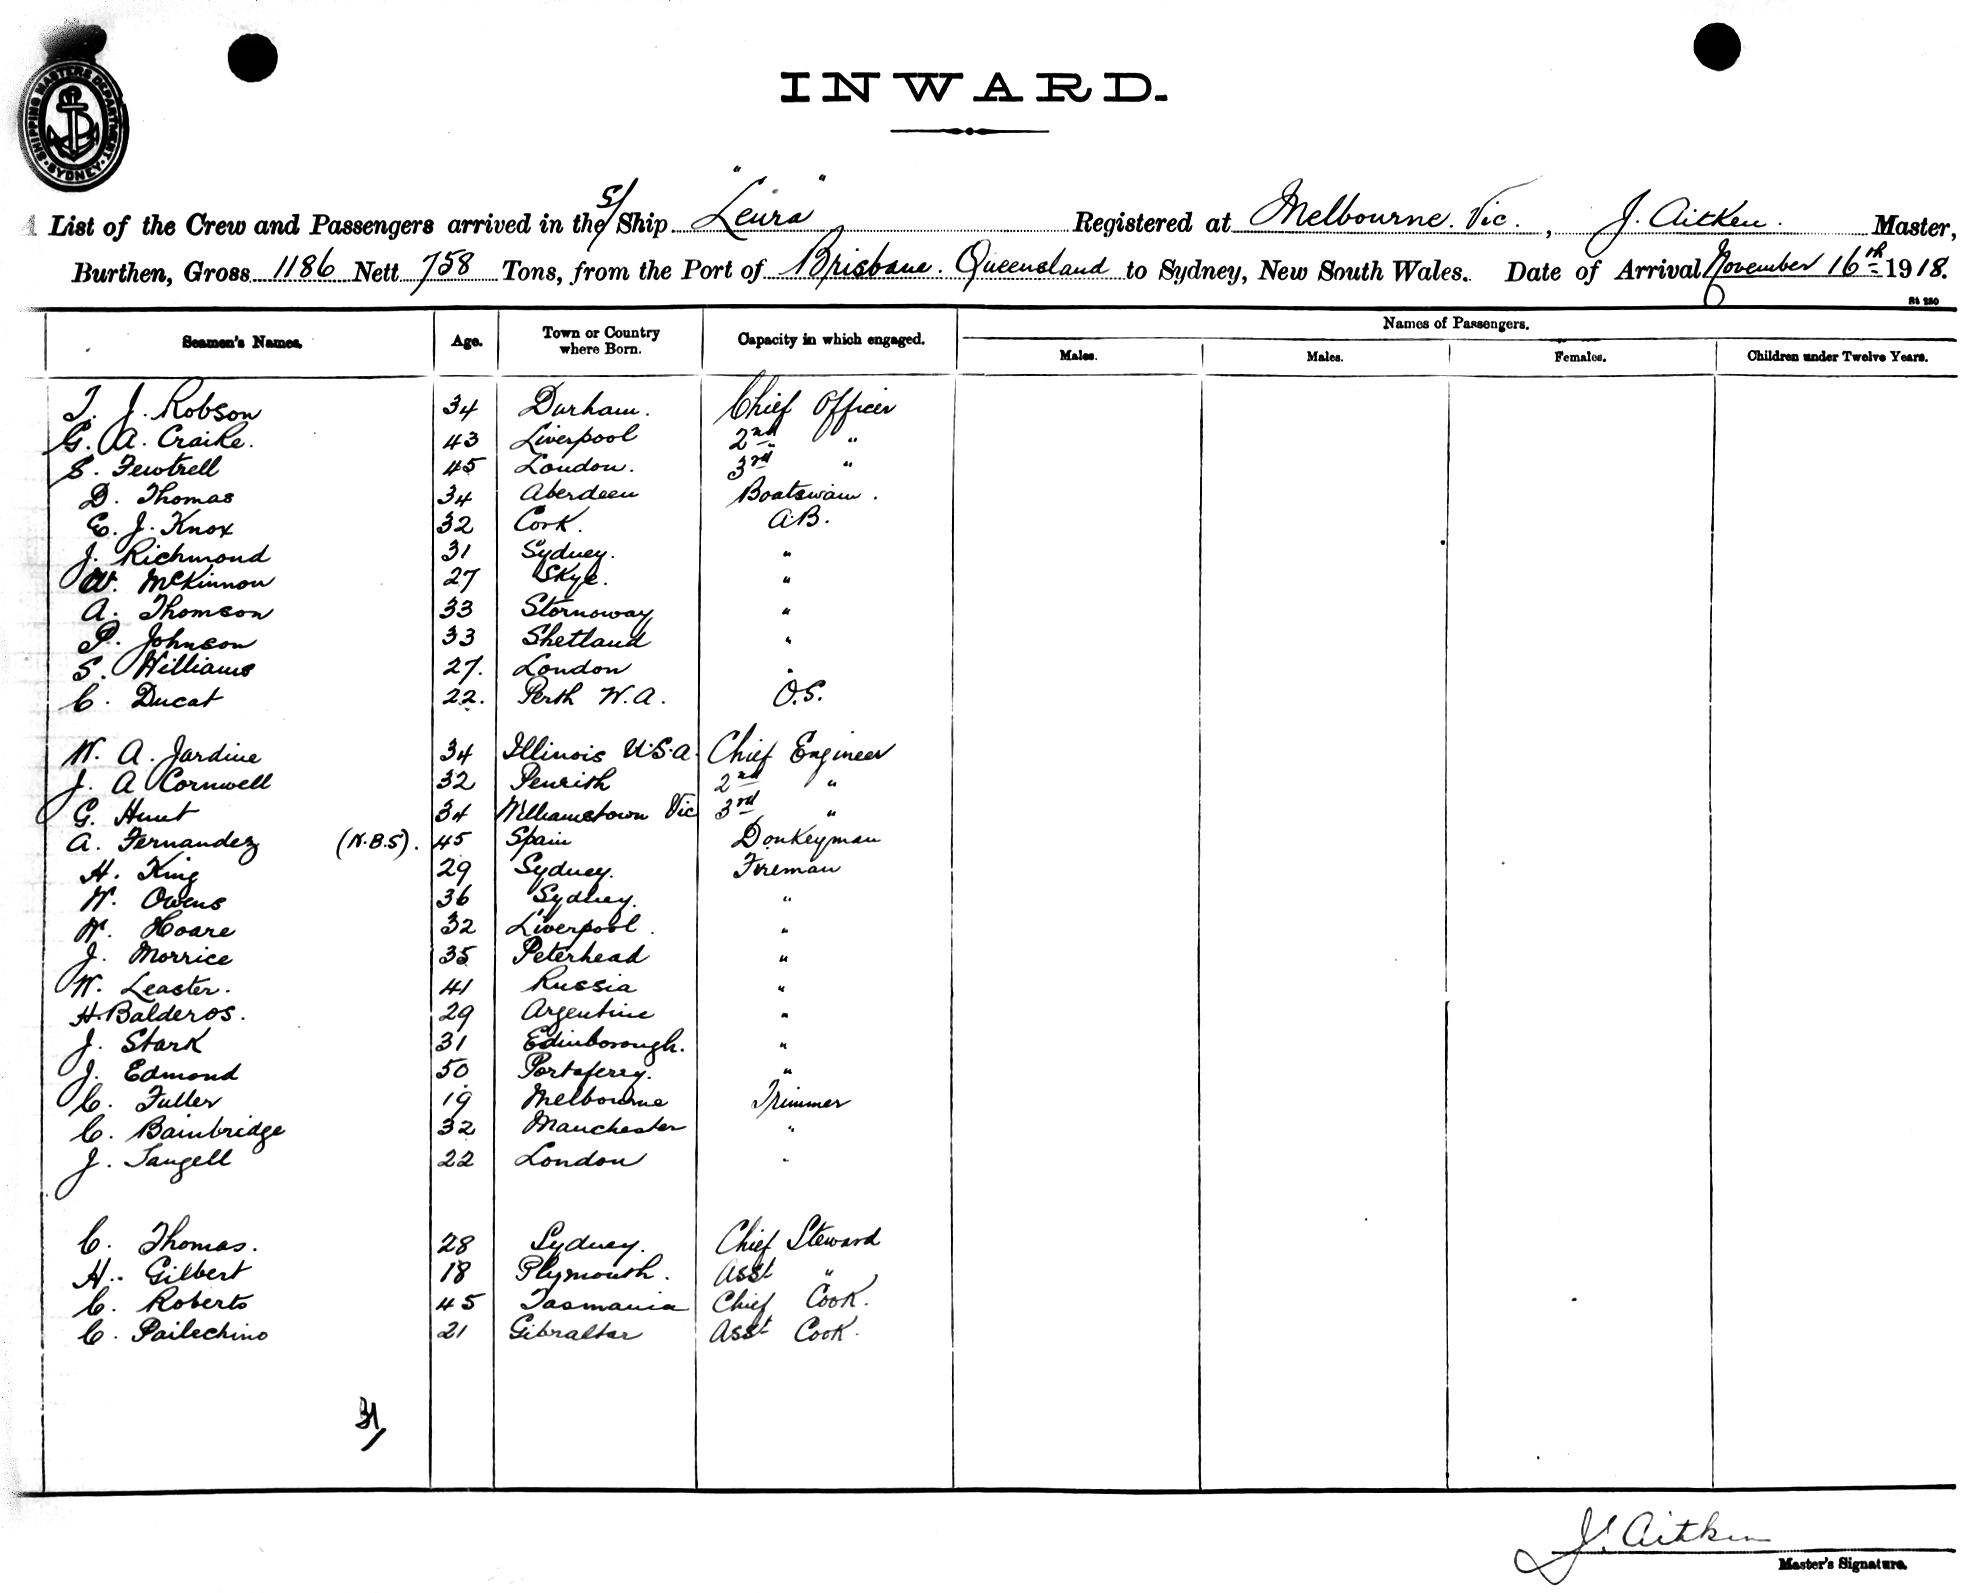 SHIPPING MASTERS DEPARTMENT · SYDNEY ·
INWARD.
A List of the Crew and Passengers arrived in the S/Ship "Leura" Registered at Melbourne. Vic. , J. Aitken. Master,
Burthen, Gross 1186 Nett 758 Tons, from the Port of Brisbane. Queensland to Sydney, New South Wales. Date of Arrival November 16th 1918.
Seamen's Names. Age. Town or Country where Born. Capacity in which engaged. Names of Passengers.
Males. Males. Females. Children under Twelve Years.
T. J. Robson 34 Durham. Chief Officer
G. A. Craike. 43 Liverpool 2nd "
S. Fewtrell 45 London. 3rd "
D. Thomas 34 Aberdeen Boatswain.
E. J. Knox 32 Cork. A.B.
J. Richmond 31 Sydney. "
W. McKinnon 27 Skye. "
A. Thomson 33 Stornoway "
P. Johnson 33 Shetland "
S. Williams 27. London "
C. Ducat 22. Perth W.A. O.S.
W. A. Jardine 34 Illinois U.S.A. Chief Engineer
J. A Cornwell 32 Penrith 2nd "
G. Hunt 34 Williamstown Vic 3rd "
A. Fernandez (N.B.S). 45 Spain Donkeyman
H. King 29 Sydney. Fireman
W. Owens 36 Sydney. "
W. Hoare 32 Liverpool. "
J. Morrice 35 Peterhead "
W. Leaster. 41 Russia "
H. Balderos. 29 Argentine "
J. Stark 31 Edinborough. "
J. Edmond 50 Portaferry. "
C. Fuller 19 Melbourne Trimmer
C. Bainbridge 32 Manchester "
J. Tangell 22 London "
C. Thomas. 28 Sydney. Chief Steward
H. Gilbert 18 Plymouth. Asst "
C. Roberts 45 Tasmania Chief Cook.
C. Pailechino 21 Gibraltar Asst Cook.
31/
J. Aitken
Master's Signature.